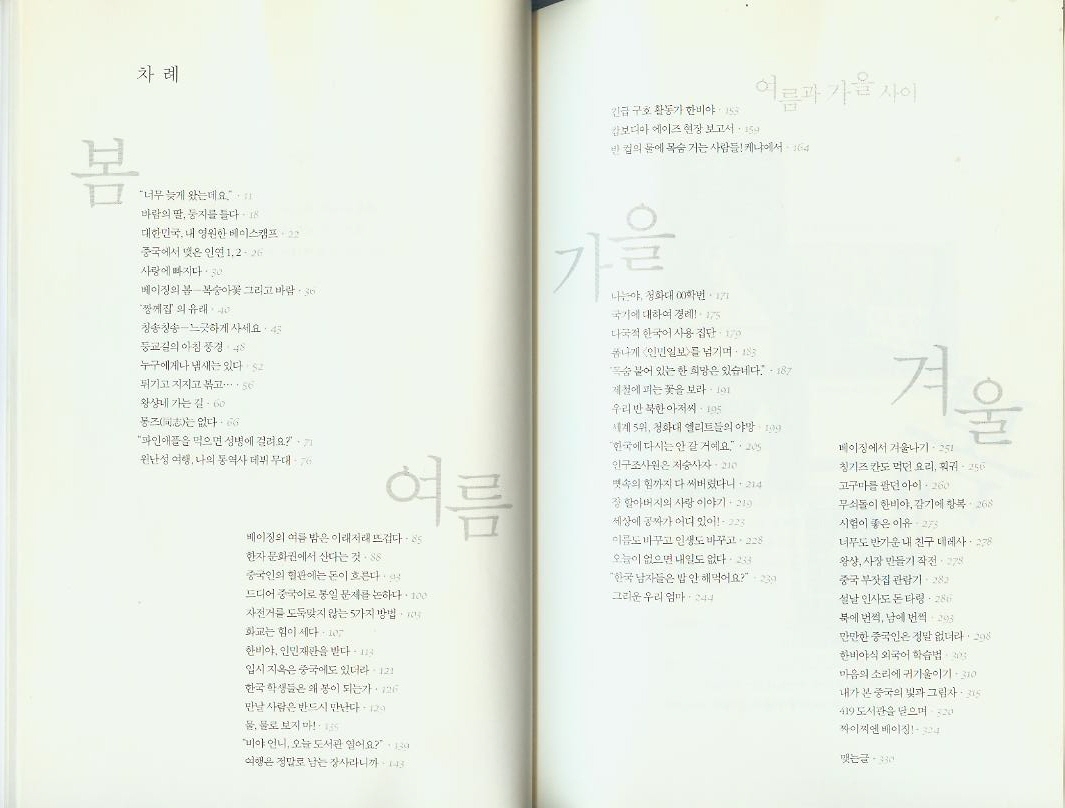 차 례
봄
"너무 늦게 왔는데요." · 11
바람의 딸, 둥지를 틀다 · 18
대한민국, 내 영원한 베이스캠프 · 22
중국에서 맺은 인연 1, 2 · 26
사랑에 빠지다 · 30
베이징의 봄－복숭아꽃 그리고 바람 · 36
'짱께집'의 유래 · 40
칭송칭송－느긋하게 사세요 · 43
등교길의 아침 풍경 · 48
누구에게나 냄새는 있다 · 52
튀기고 지지고 볶고… · 56
왕샹네 가는 길 · 60
통즈(同志)는 없다 · 66
"파인애플을 먹으면 성병에 걸려요?" · 71
윈난성 여행, 나의 통역사 데뷔 무대 · 76
여름
베이징의 여름 밤은 이래저래 뜨겁다 · 85
한자 문화권에서 산다는 것 · 88
중국인의 혈관에는 돈이 흐른다 · 93
드디어 중국어로 통일 문제를 논하다 · 100
자전거를 도둑맞지 않는 5가지 방법 · 103
화교는 힘이 세다 · 107
한비야, 인민재판을 받다 · 113
입시 지옥은 중국에도 있더라 · 121
한국 학생들은 왜 봉이 되는가 · 126
만날 사람은 반드시 만난다 · 129
물, 물로 보지 마! · 135
"비야 언니, 오늘 도서관 열어요?" · 139
여행은 정말로 남는 장사라니까 · 143
여름과 가을 사이
긴급 구호 활동가 한비야 · 153
캄보디아 에이즈 현장 보고서 · 159
반 컵의 물에 목숨 거는 사람들! 케냐에서 · 164
가을
나는야, 청화대 00학번 · 171
국기에 대하여 경례! · 175
다국적 한국어 사용 집단 · 179
폼나게 〈인민일보〉를 넘기며 · 183
"목숨 붙어 있는 한 희망은 있습네다." · 187
제철에 피는 꽃을 보라 · 191
우리 반 북한 아저씨 · 195
세계 5위, 청화대 엘리트들의 야망 · 199
"한국에 다시는 안 갈 거예요." · 205
인구조사원은 저승사자 · 210
뼛속의 힘까지 다 써버렸다니 · 214
장 할아버지의 사랑 이야기 · 219
세상에 공짜가 어디 있어! · 223
이름도 바꾸고 인생도 바꾸고 · 228
오늘이 없으면 내일도 없다 · 233
"한국 남자들은 밤 안 해먹어요?" · 239
그리운 우리 엄마 · 244
겨울
베이징에서 겨울나기 · 251
칭기즈 칸도 먹던 요리, 훠궈 · 256
고구마를 팔던 아이 · 260
무쇠돌이 한비야, 감기에 항복 · 268
시험이 좋은 이유 · 273
너무도 반가운 내 친구 데레사 · 278
왕샹, 사장 만들기 작전 · 278
중국 부잣집 관람기 · 282
설날 인사도 돈 타령 · 286
북에 번쩍, 남에 번쩍 · 293
만만한 중국인은 정말 없더라 · 298
한비야식 외국어 학습법 · 303
마음의 소리에 귀기울이기 · 310
내가 본 중국의 빛과 그림자 · 315
419 도서관을 닫으며 · 320
짜이찌엔 베이징! · 324
맺는글 · 330